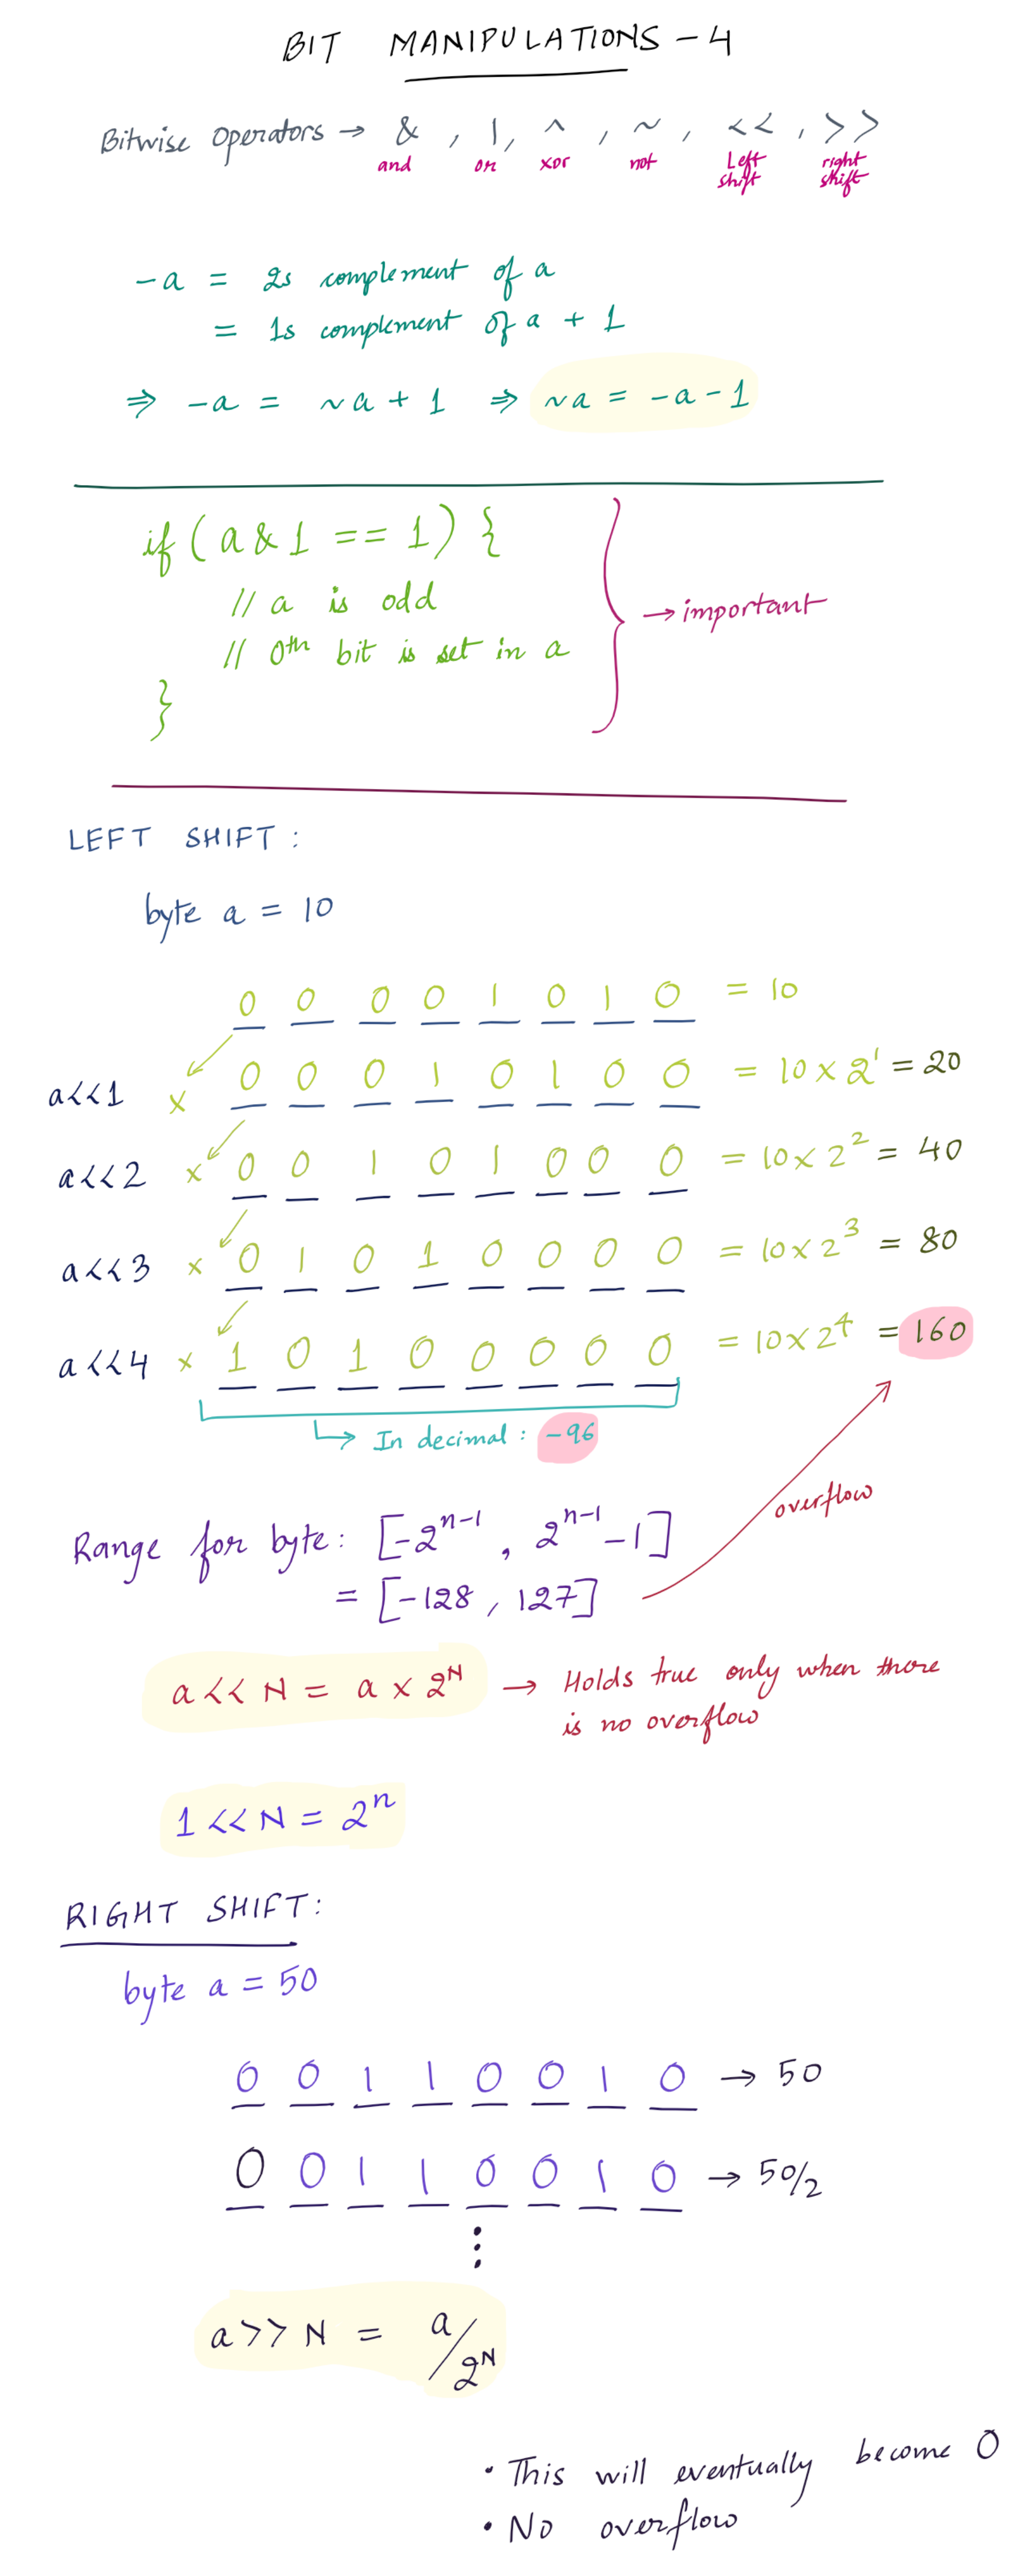 BIT MANIPULATIONS - 4
Bitwise Operators → & , | , ^ , ~ , << , >>
and or xor not Left shift right shift
-a = 2s complement of a
= 1s complement of a + 1
⇒ -a = ~a + 1 ⇒ ~a = -a - 1
if ( a & 1 == 1 ) {
// a is odd
// 0th bit is set in a
}
→ important
LEFT SHIFT :
byte a = 10
0 0 0 0 1 0 1 0 = 10
a<<1 x 0 0 0 1 0 1 0 0 = 10 x 2^1 = 20
a<<2 x 0 0 1 0 1 0 0 0 = 10 x 2^2 = 40
a<<3 x 0 1 0 1 0 0 0 0 = 10 x 2^3 = 80
a<<4 x 1 0 1 0 0 0 0 0 = 10 x 2^4 = 160
In decimal : -96
overflow
Range for byte : [-2^n-1 , 2^n-1 - 1]
= [-128 , 127]
a << N = a x 2^N → Holds true only when there
is no overflow
1 << N = 2^n
RIGHT SHIFT :
byte a = 50
0 0 1 1 0 0 1 0 → 50
0 0 1 1 0 0 1 0 → 50/2
⋮
a >> N = a/2^N
• This will eventually become 0
• No overflow